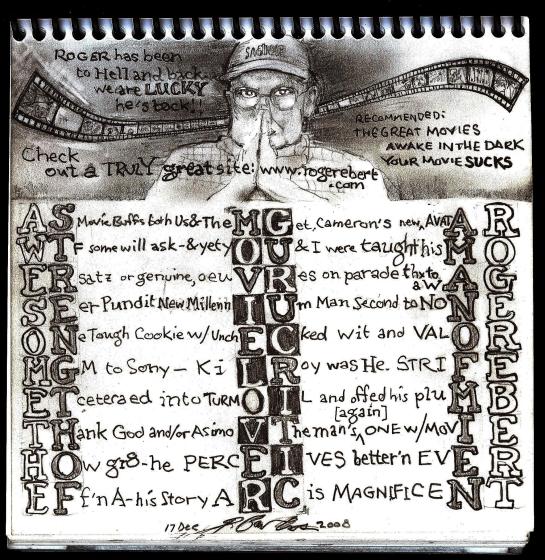 SAGINAW
ROGER has been
to Hell and back.
we are LUCKY
he's back!!
RECOMMENDED:
THE GREAT MOVIES
AWAKE IN THE DARK
YOUR MOVIE SUCKS
Check
out a TRULY great site: www.rogerebert
.com
AS Movie Buffs both Us & The MG et, Cameron's new, AVAT AR
WT F some will ask - & yet y OU & I were taught his MO
ER satz or genuine, oeu VR es on parade thx to a W AG
SE er Pundit New Millenn IU m Man Second to NO NE
ON e Tough Cookie w/ Unch EC ked Wit and VAL OR
MG M to Sony — Ki LR oy was He. STRI FE
ET ceteraed into TURM OI L and offed his plu MB
[again]
TH ank God and/or Asimo VT he man's, ONE w/ MoV IE
HO w gr8-he PERC EI VES better'n EV ER
EF f'n A-his Story A RC is MAGNIFICE NT
17 Dec 2008